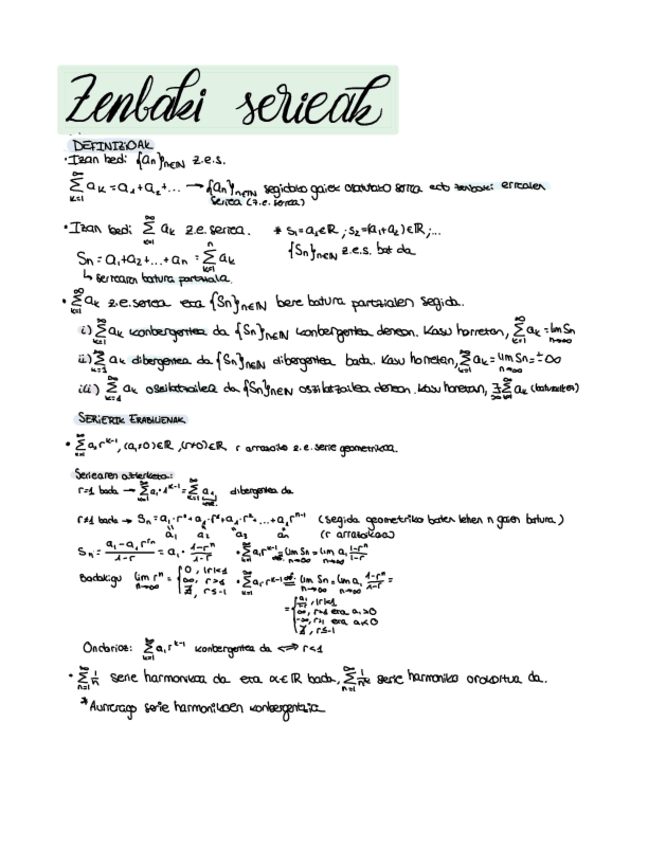 Zenbaki serieak
DEFINIZIOAK
• Izan bedi {aₙ}ₙ∈ℕ z.e.s.
∑_{k=1}^{∞} aₖ = a₁+a₂+... → {aₙ}ₙ∈ℕ segidako gaiek osatutako seriea edo zenbaki errealen
seriea (z.e. seriea)
• Izan bedi ∑_{k=1}^{∞} aₖ z.e. seriea. * s₁=a₁∈ℝ ; s₂=(a₁+a₂)∈ℝ ;...
Sₙ = a₁+a₂+...+aₙ = ∑_{k=1}^{n} aₖ {Sₙ}ₙ∈ℕ z.e.s. bat da
↳ seriearen batura partziala.
• ∑_{k=1}^{∞} aₖ z.e. seriea eta {Sₙ}ₙ∈ℕ bere batura partzialen segida.
i) ∑_{k=1}^{∞} aₖ konbergentea da {Sₙ}ₙ∈ℕ konbergentea denean. Kasu horretan, ∑_{k=1}^{∞} aₖ = lim_{n→∞} Sₙ
ii) ∑_{k=1}^{∞} aₖ dibergentea da {Sₙ}ₙ∈ℕ dibergentea bada. Kasu honetan, ∑_{k=1}^{∞} aₖ = lim_{n→∞} Sₙ = ±∞
iii) ∑_{k=1}^{∞} aₖ oszilatzailea da {Sₙ}ₙ∈ℕ oszilatzailea denean. Kasu honetan, ∄ ∑ aₖ
SERIERIK ERABILIENAK
• ∑_{k=1}^{∞} a₁r^{k-1}, (a₁≠0)∈ℝ, (r≠0)∈ℝ r arrazoiko z.e. serie geometrikoa.
Seriearen azterketa:
r=1 bada → ∑_{k=1}^{∞} a₁·1^{k-1} = ∑_{k=1}^{∞} a₁ dibergentea da
r≠1 bada → Sₙ = a₁·r⁰+a₁·r¹+a₁·r²+...+a₁r^{n-1} (segida geometriko baten lehen n gaien batura)
a₁ a₂ a₃ aₙ (r arrazoikoa)
Sₙ = (a₁-a₁rⁿ)/(1-r) = a₁·(1-rⁿ)/(1-r) • ∑_{k=1}^{∞} a₁r^{k-1} = lim_{n→∞} Sₙ = lim_{n→∞} a₁ (1-rⁿ)/(1-r)
Badakigu lim_{n→∞} rⁿ = { 0, |r|<1 • ∑_{k=1}^{∞} a₁r^{k-1} def= lim_{n→∞} Sₙ = lim_{n→∞} a₁ (1-rⁿ)/(1-r) =
∞, r>1
∄, r≤-1
= { a₁/(1-r), |r|<1
∞, r>1 eta a₁>0
-∞, r>1 eta a₁<0
∄, r≤-1
Ondorioz: ∑_{k=1}^{∞} a₁r^{k-1} konbergentea da ⟺ r<1
• ∑_{n=1}^{∞} 1/n serie harmonikoa da eta α∈ℝ bada, ∑_{n=1}^{∞} 1/n^α serie harmoniko orokortua da.
*Aurrerago serie harmonikoen konbergentzia